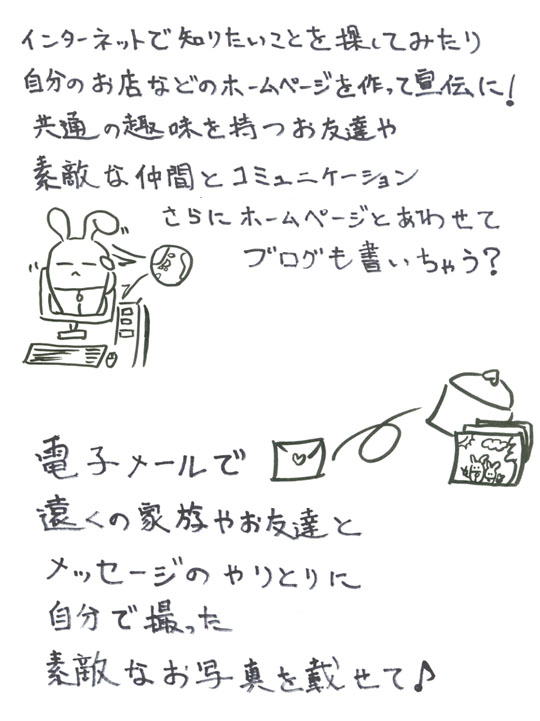 インターネットで知りたいことを探してみたり
自分のお店などのホームページを作って宣伝に!
共通の趣味を持つお友達や
素敵な仲間とコミュニケーション
さらにホームページとあわせて
ブログも書いちゃう?
電子メールで
遠くの家族やお友達と
メッセージのやりとりに
自分で撮った
素敵なお写真を載せて♪